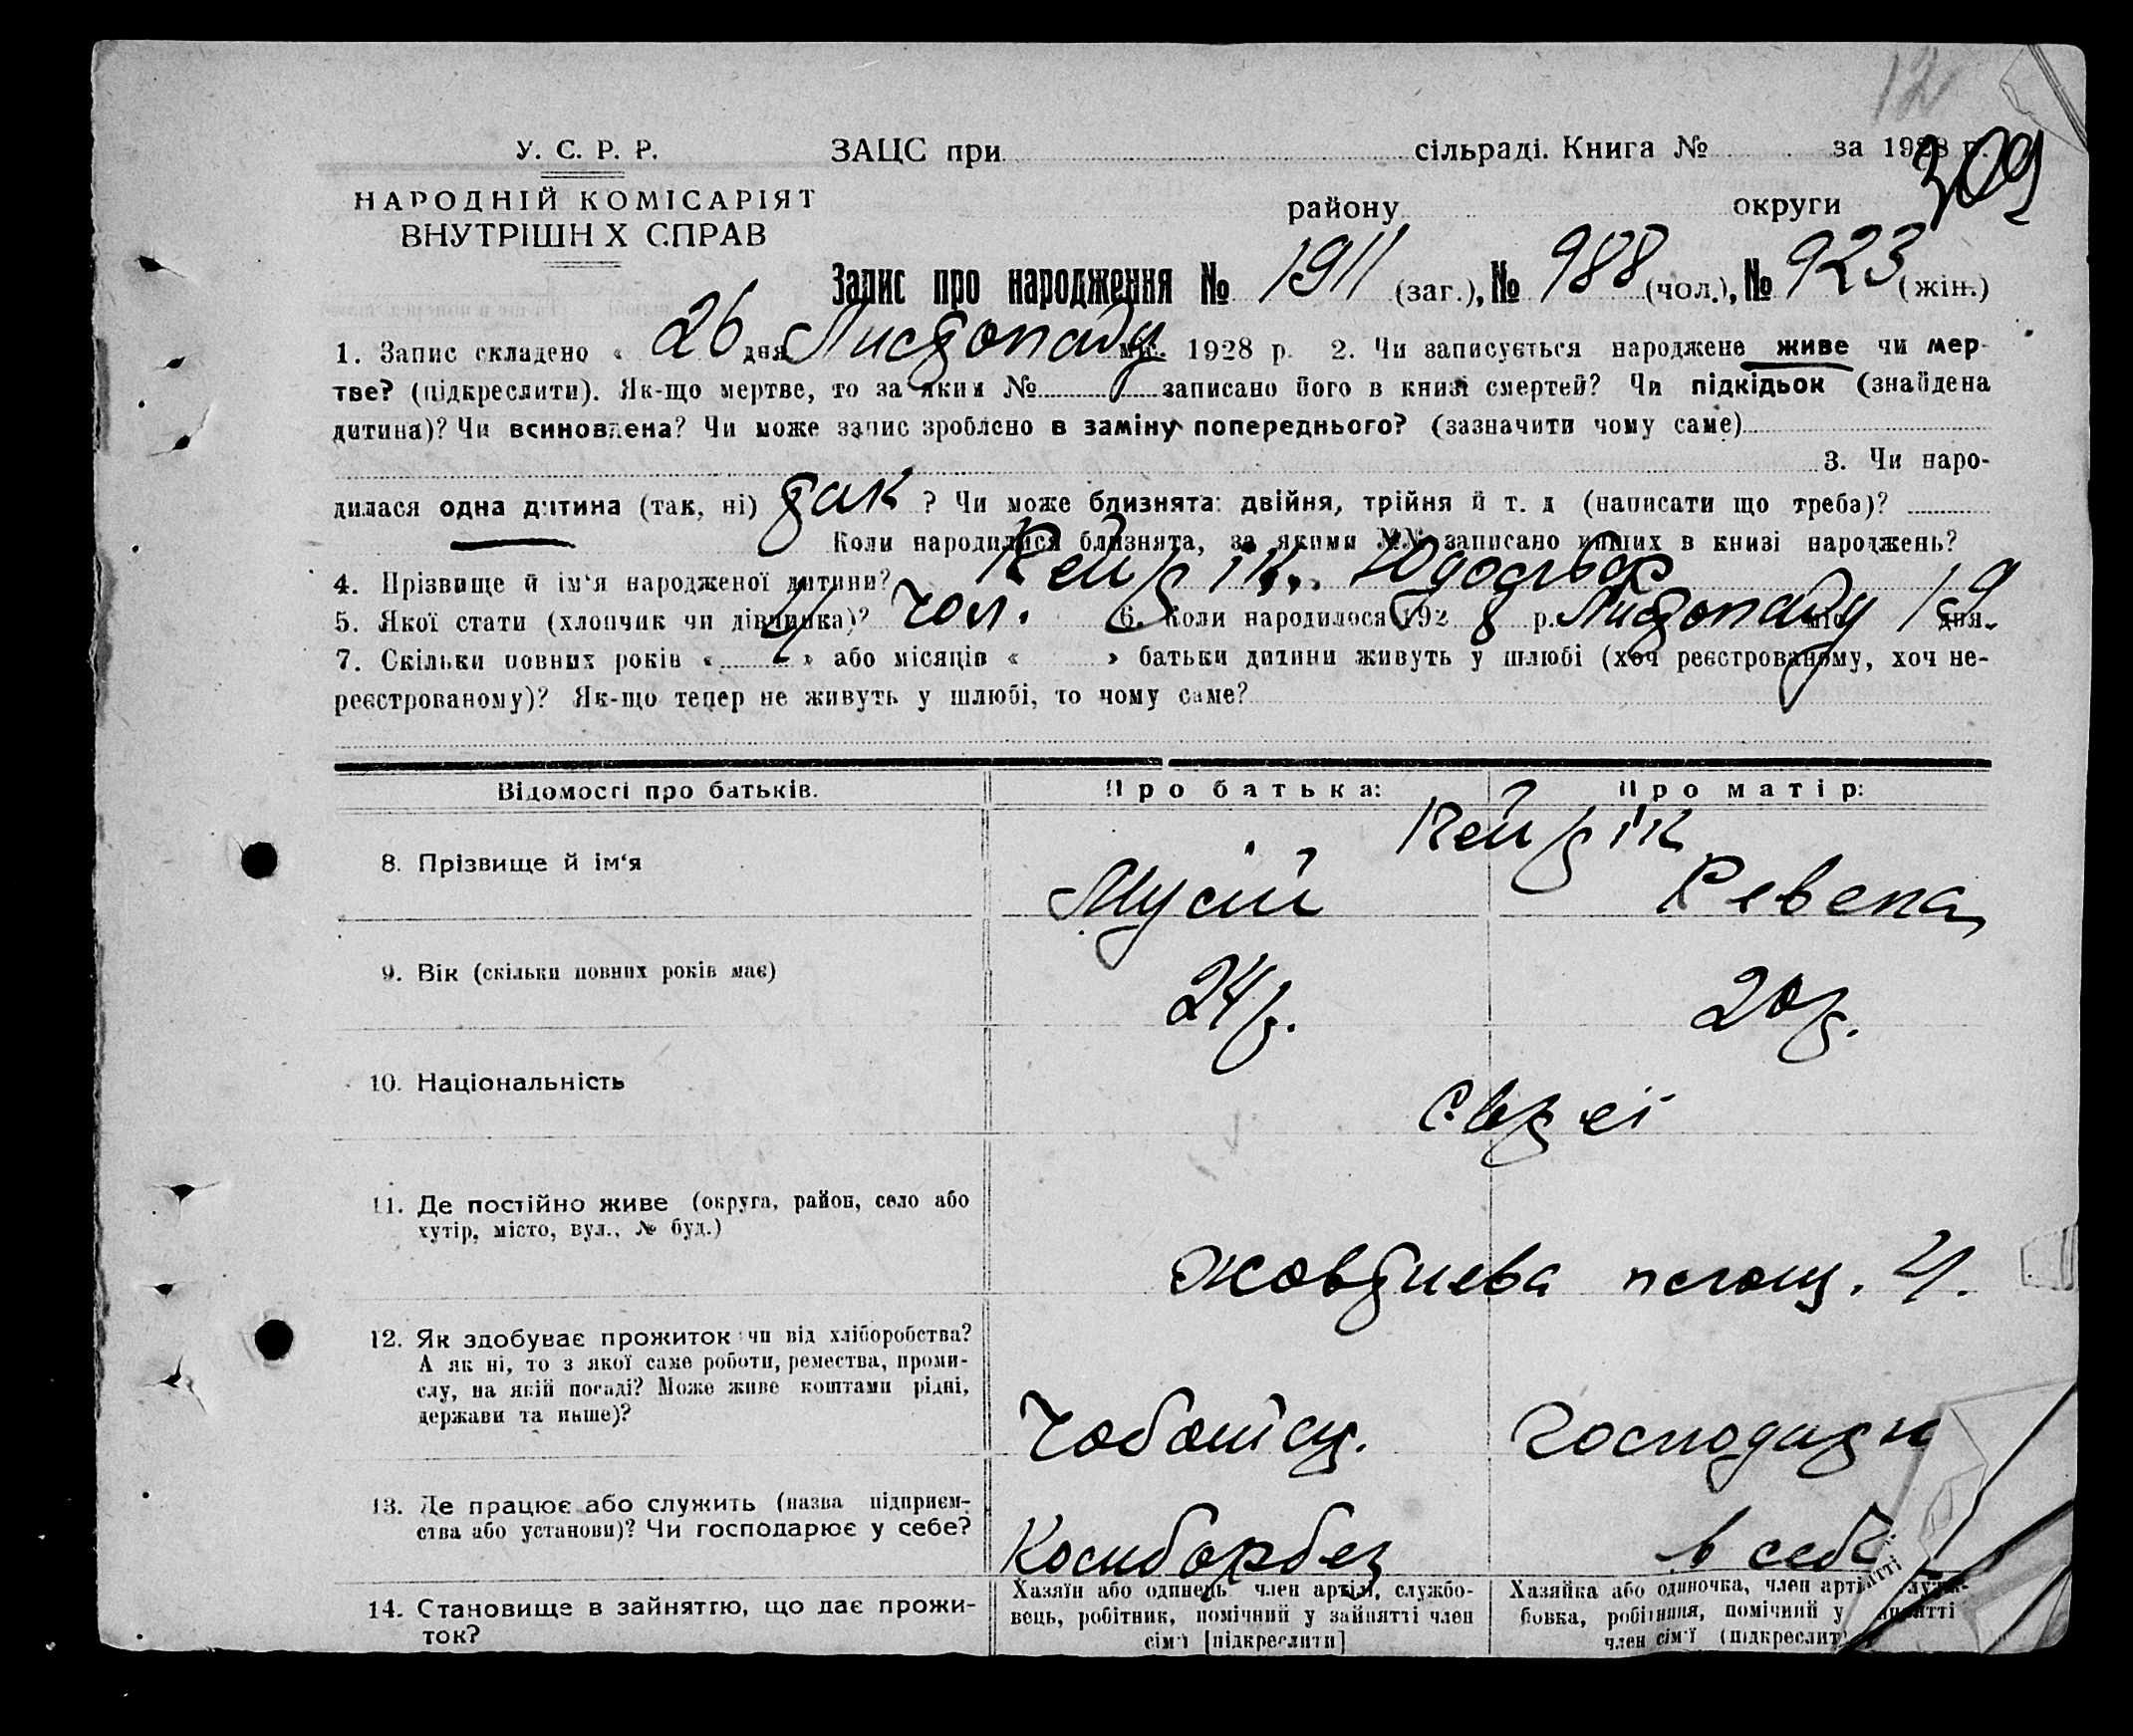 12
309
У. С. Р. Р.
ЗАЦС при сільраді. Книга № за 1928 р.
НАРОДНІЙ КОМІСАРІЯТ
ВНУТРІШН Х СПРАВ
району округи
Запис про народження № 1911 (заг.), № 988 (чол.), № 923 (жін.)
1. Запис складено « 26 дня Листопаду міс. 1928 р. 2. Чи записується народжене живе чи мер-
тве? (підкреслити). Як-що мертве, то за яким № записано його в книзі смертей? Чи підкідьок (знайдена
дитина)? Чи всиновлена? Чи може запис зроблено в заміну попереднього? (зазначити чому саме)
3. Чи наро-
дилася одна дитина (так, ні) так ? Чи може близнята: двійня, трійня й т. д (написати що треба)?
Коли народилися близнята, за якими №№ записано инших в книзі народжень?
4. Прізвище й ім'я народженої дитини?
5. Якої статі (хлопчик чи дівчинка)? Чол. 6. Коли народилося 1928 р. Листопаду міс. 19 дня.
7. Скільки повних років « » або місяців « » батьки дитини живуть у шлюбі (хоч реєстрованому, хоч не-
реєстрованому)? Як-що тепер не живуть у шлюбі, то чому саме?
Відомості про батьків. Про батька: Про матір:
8. Прізвище й ім'я Мусій Ревека
9. Вік (скільки повних років має) 24 р. 20 р.
10. Національність Євреї
11. Де постійно живе (округа, район, село або
хутір, місто, вул., № буд.)
Жовтнева площ. 4.
12. Як здобуває прожиток чи від хліборобства?
А як ні, то з якої саме роботи, ремества, проми-
слу, на якій посаді? Може живе коштами рідні,
держави та инше)?
Господарк
13. Де працює або служить (назва підприєм-
ства або установи)? Чи господарює у себе?
Комборбез в себе
14. Становище в зайняттю, що дає прожи-
ток?
Хазяїн або одинець член артілі, службо-
вець, робітник, помічний у зайнятті член
сім'ї [підкреслити]
Хазяйка або одиночка, член арті служ-
бовка, робітниця, помічний у зайнятті
член сім'ї (підкреслит